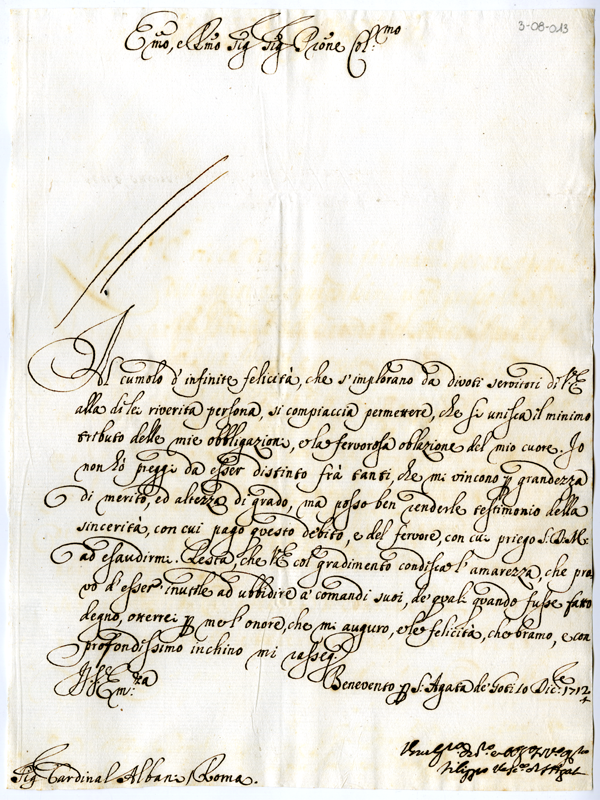 3-08-013
Emo, e Rmo Sig Sig Prone Col:mo
Al cumolo d'infinite felicità, che s'implorano da divoti servitori di V.E
alla di lei riverita persona, si compiaccia permettere, che si unisca il minimo
tributo delle mie obbligazioni, e la fervorosa oblazione del mio cuore. Io
non hò preggi da esser distinto frà tanti, che mi vincono p grandezza
di merito, ed altezza di grado, ma posso ben renderle testimonio della
sincerità, con cui pago questo debito, e del fervore, con cui priego S.D.M.
ad esaudirmi. Resta, che V.E col gradimento condisca l'amarezza, che pro,
vo d'esser inutile ad ubbidire a' comandi suoi, de' quali quando fusse fatto
degno, otterrei p me l'onore, che mi auguro, e le felicità, che bramo, e con
profondissimo inchino mi rassego
Benevento p S. Agata de' Goti 10 Dic.e 1712
Filippo
Sig Cardinal Albani Roma.